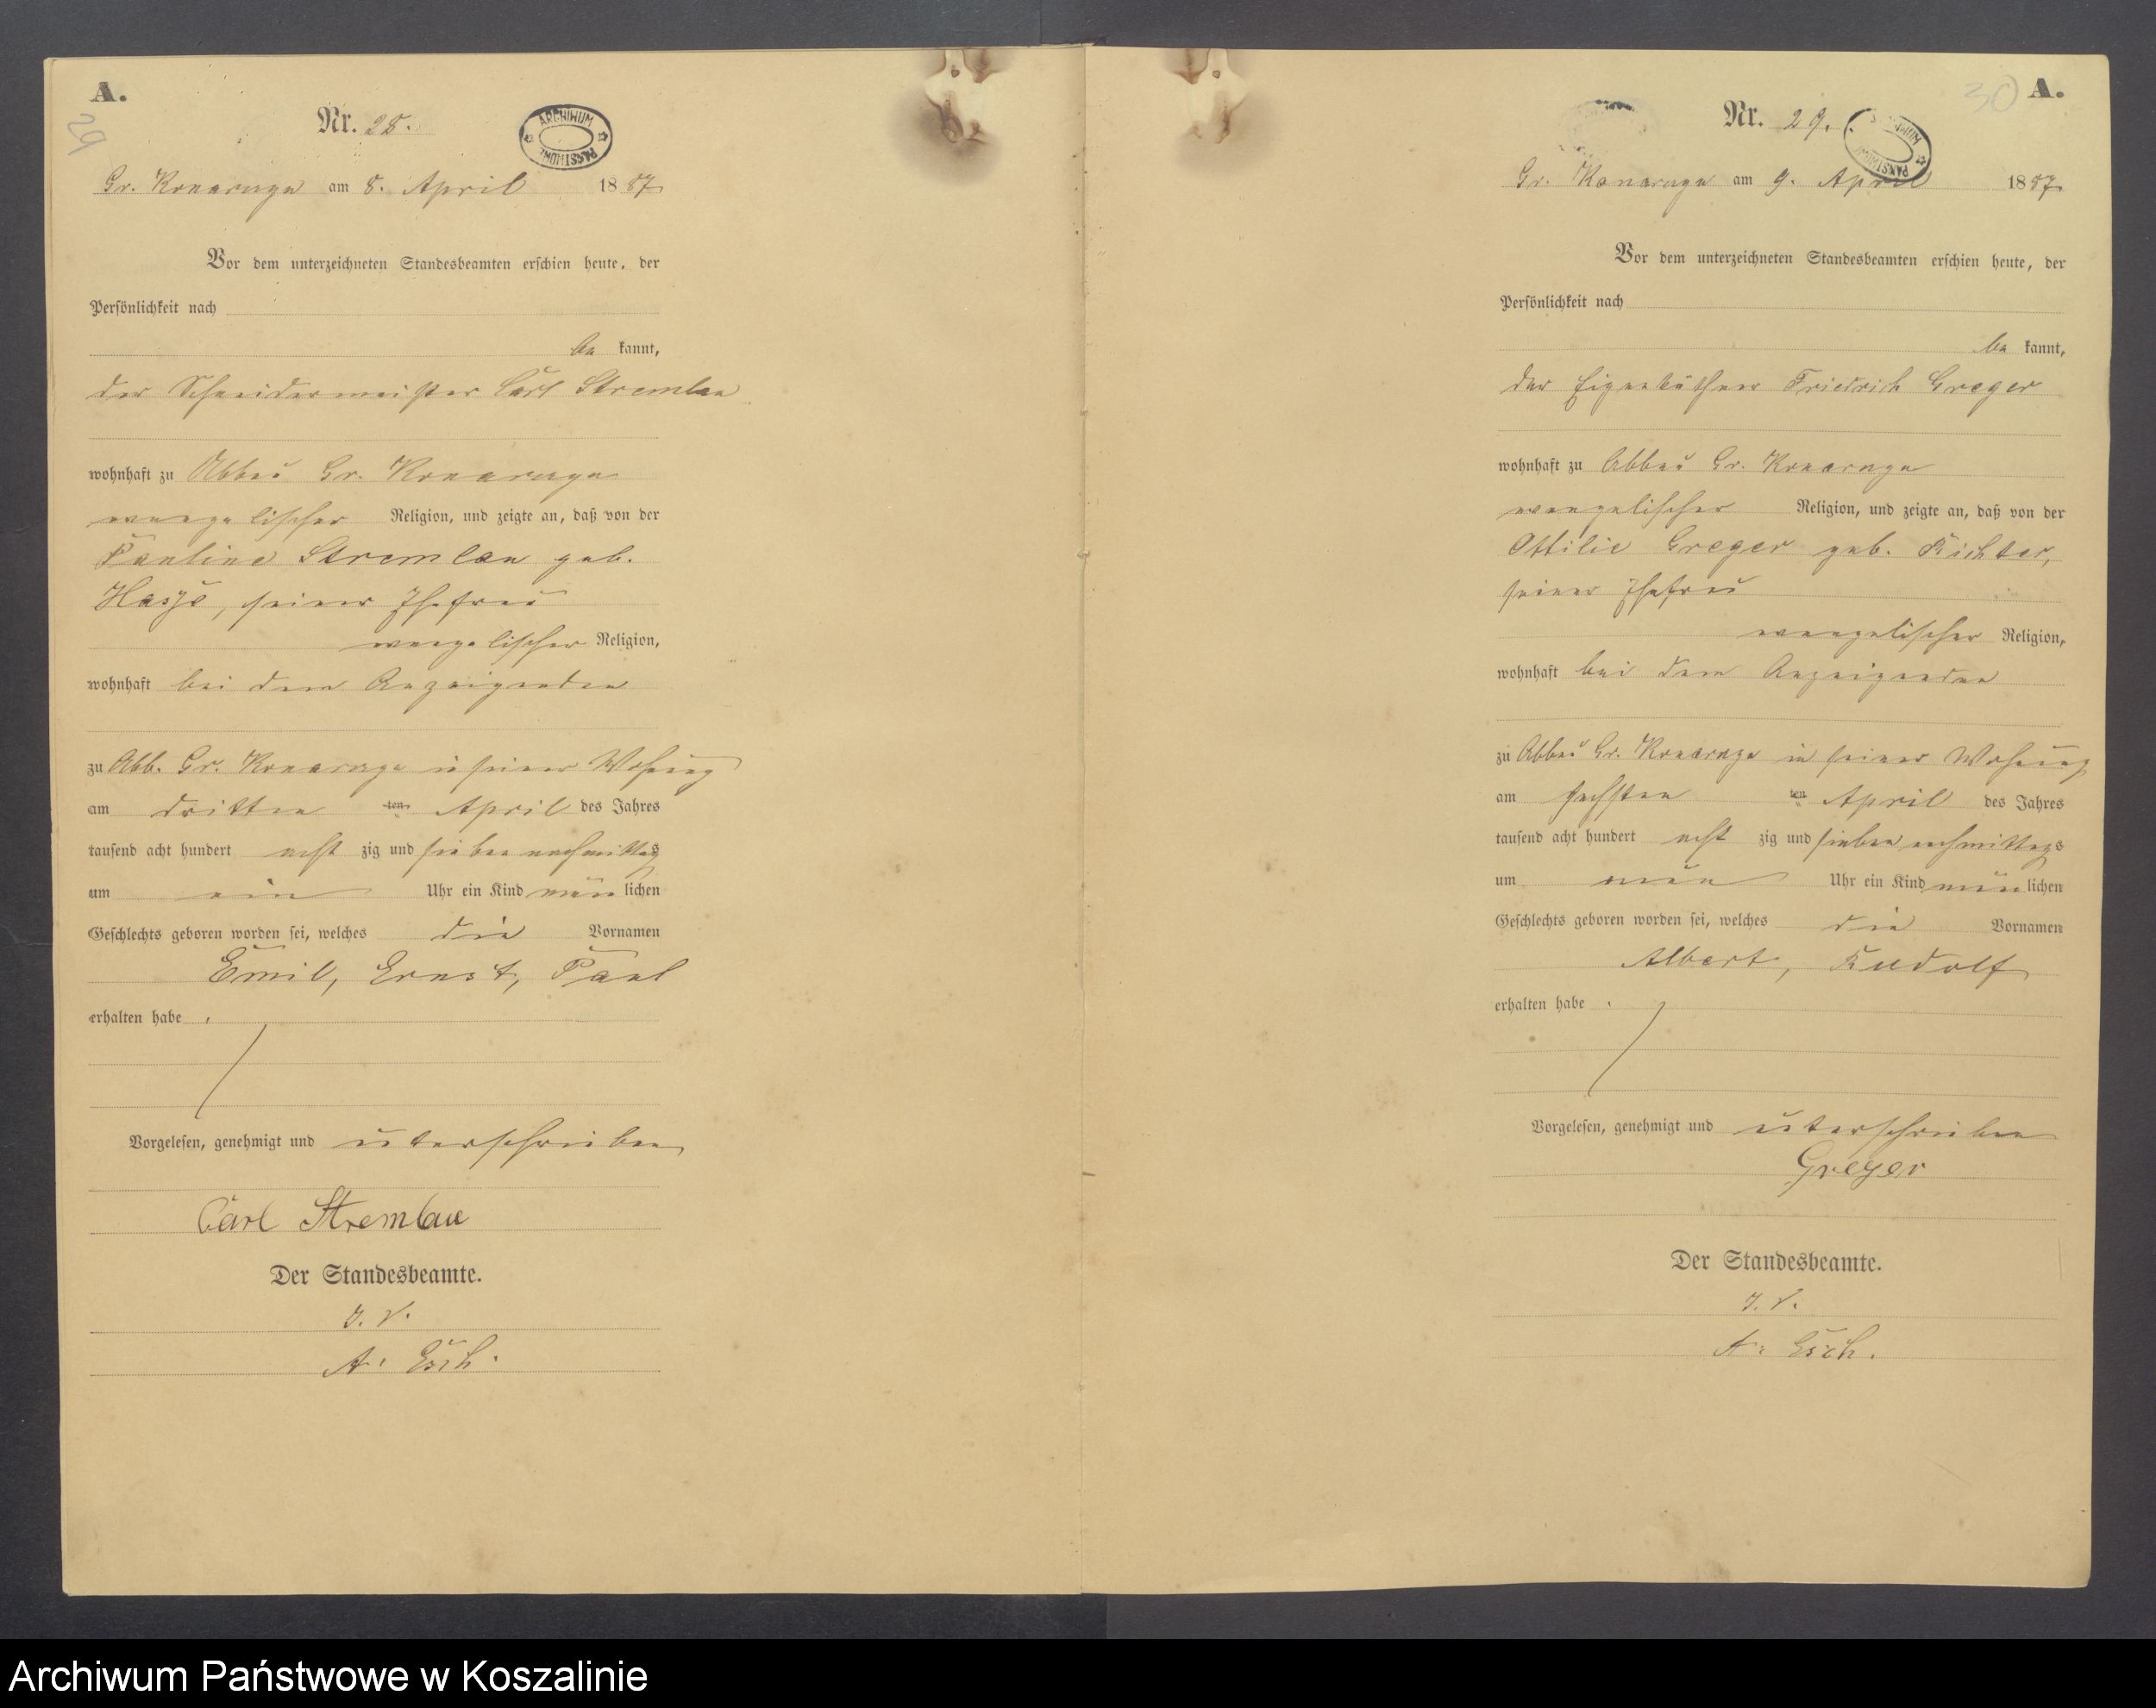 A.
29
Nr. 28.
ARCHIWUM PAŃSTWOWE
Gr. Konarczyn am 8. April 1887
Vor dem unterzeichneten Standesbeamten erschien heute, der
Persönlichkeit nach
be kannt,
der Schneidermeister Carl Stremlau
wohnhaft zu Abbau Gr. Konarczyn
evangelischer Religion, und zeigte an, daß von der
Pauline Stremlau geb.
seiner Ehefrau
evangelischer Religion,
wohnhaft bei dem Anzeigenden
zu Abb. Gr. Konarczyn in seiner Wohnung
am dritten ten April des Jahres
tausend acht hundert acht zig und sieben nachmittags
um ein Uhr ein Kind männlichen
Geschlechts geboren worden sei, welches die Vornamen
Emil, Ernst, Paul
erhalten habe .
Vorgelesen, genehmigt und unterschrieben
Carl Stremlau
Der Standesbeamte.
I. V.
A. Esch.
30 A.
Nr. 29.
Gr. Konarczyn am 9. April 1887
Vor dem unterzeichneten Standesbeamten erschien heute, der
Persönlichkeit nach
be kannt,
der Eigenkäthner Friedrich Greger
wohnhaft zu Abbau Gr. Konarczyn
evangelischer Religion, und zeigte an, daß von der
Ottilie Greger geb. Richter,
seiner Ehefrau
evangelischer Religion,
wohnhaft bei dem Anzeigenden
zu Abbau Gr. Konarczyn in seiner Wohnung
am sechsten ten April des Jahres
tausend acht hundert acht zig und sieben nachmittags
um neun Uhr ein Kind männlichen
Geschlechts geboren worden sei, welches die Vornamen
Albert, Rudolf
erhalten habe .
Vorgelesen, genehmigt und unterschrieben
Greger
Der Standesbeamte.
I. V.
A. Esch.
Archiwum Państwowe w Koszalinie